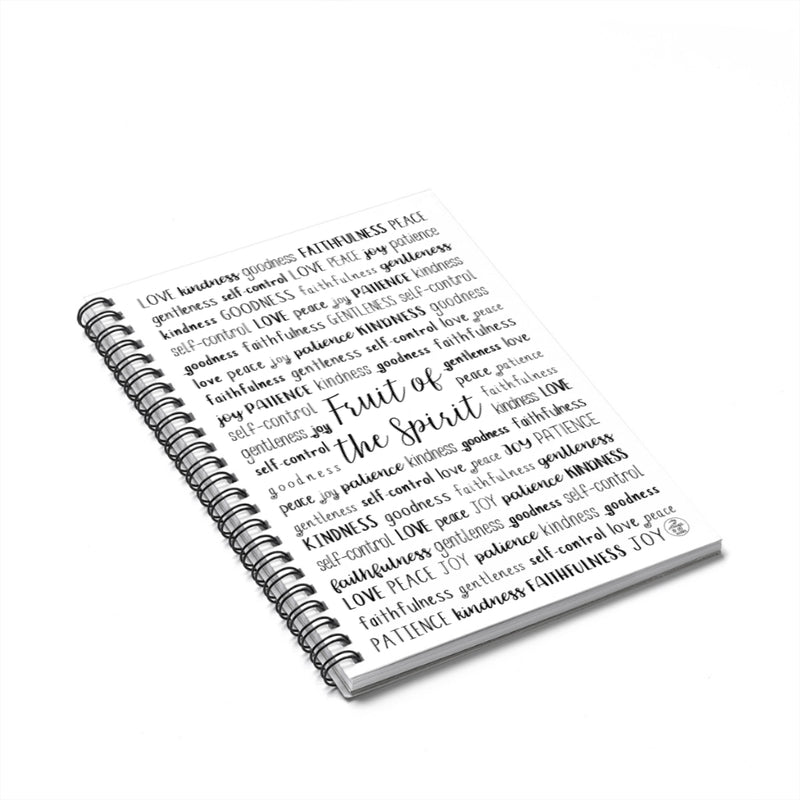 LOVE kindness goodness FAITHFULNESS PEACE
gentleness self-control LOVE PEACE joy patience
kindness GOODNESS faithfulness gentleness
self-control LOVE peace joy PATIENCE kindness
goodness faithfulness GENTLENESS self-control
love peace joy patience KINDNESS goodness
faithfulness gentleness self-control love peace
joy PATIENCE kindness goodness faithfulness
self-control Fruit of gentleness love
gentleness joy peace patience
self-control the Spirit faithfulness
goodness kindness LOVE
peace joy patience kindness goodness faithfulness
gentleness self-control love peace JOY PATIENCE
KINDNESS goodness faithfulness gentleness
self-control LOVE peace JOY patience KINDNESS
faithfulness gentleness goodness self-control
LOVE PEACE JOY patience kindness goodness
faithfulness gentleness self-control love peace
PATIENCE kindness FAITHFULNESS JOY